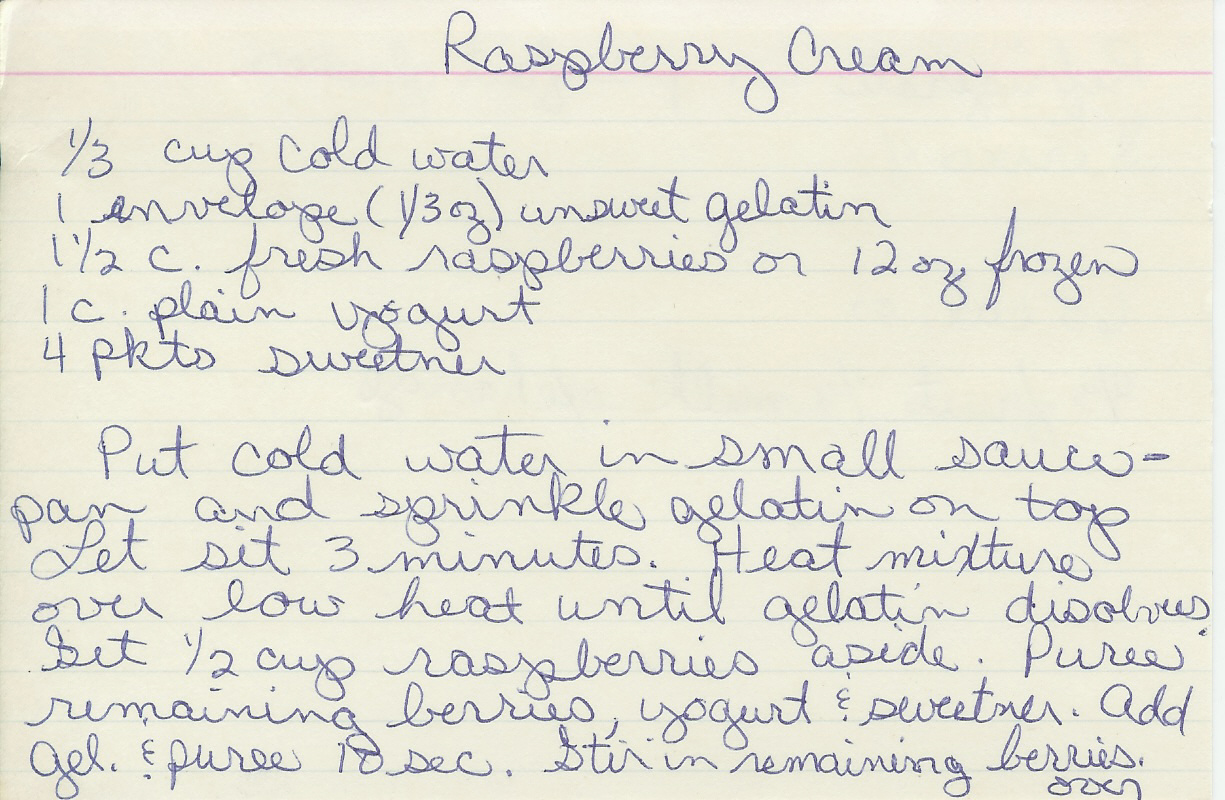 Raspberry Cream
1/3 cup cold water
1 envelope (1/3 oz) unsweet gelatin
1 1/2 c. fresh raspberries or 12 oz frozen
1 c. plain yogurt
4 pkts sweetner
Put cold water in small sauce-
pan and sprinkle gelatin on top
Let sit 3 minutes. Heat mixture
over low heat until gelatin disolves.
Set 1/2 cup raspberries aside. Puree
remaining berries, yogurt & sweetner. Add
gel. & puree 10 sec. Stir in remaining berries.
over